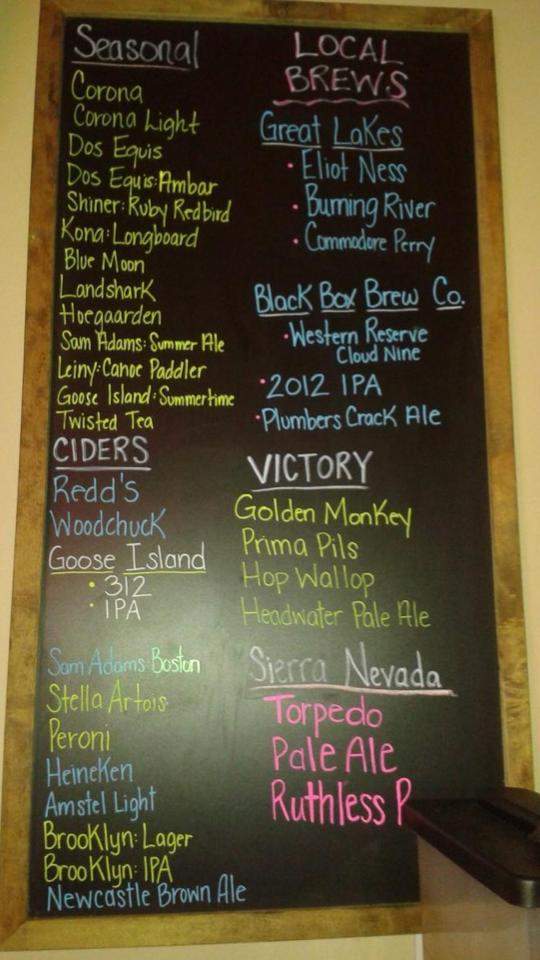 Seasonal
Corona
Corona Light
Dos Equis
Dos Equis: Ambar
Shiner: Ruby Redbird
Kona: Longboard
Blue Moon
Landshark
Hoegaarden
Sam Adams: Summer Ale
Leiny: Canoe Paddler
Goose Island: Summertime
Twisted Tea
CIDERS
Redd's
Woodchuck
Goose Island
• 312
• IPA
Sam Adams Boston
Stella Artois
Peroni
Heineken
Amstel Light
Brooklyn: Lager
Brooklyn: IPA
Newcastle Brown Ale
LOCAL
BREWS
Great Lakes
• Eliot Ness
• Burning River
• Commodore Perry
Black Box Brew Co.
• Western Reserve
Cloud Nine
• 2012 IPA
• Plumbers Crack Ale
VICTORY
Golden Monkey
Prima Pils
Hop Wallop
Headwater Pale Ale
Sierra Nevada
Torpedo
Pale Ale
Ruthless P